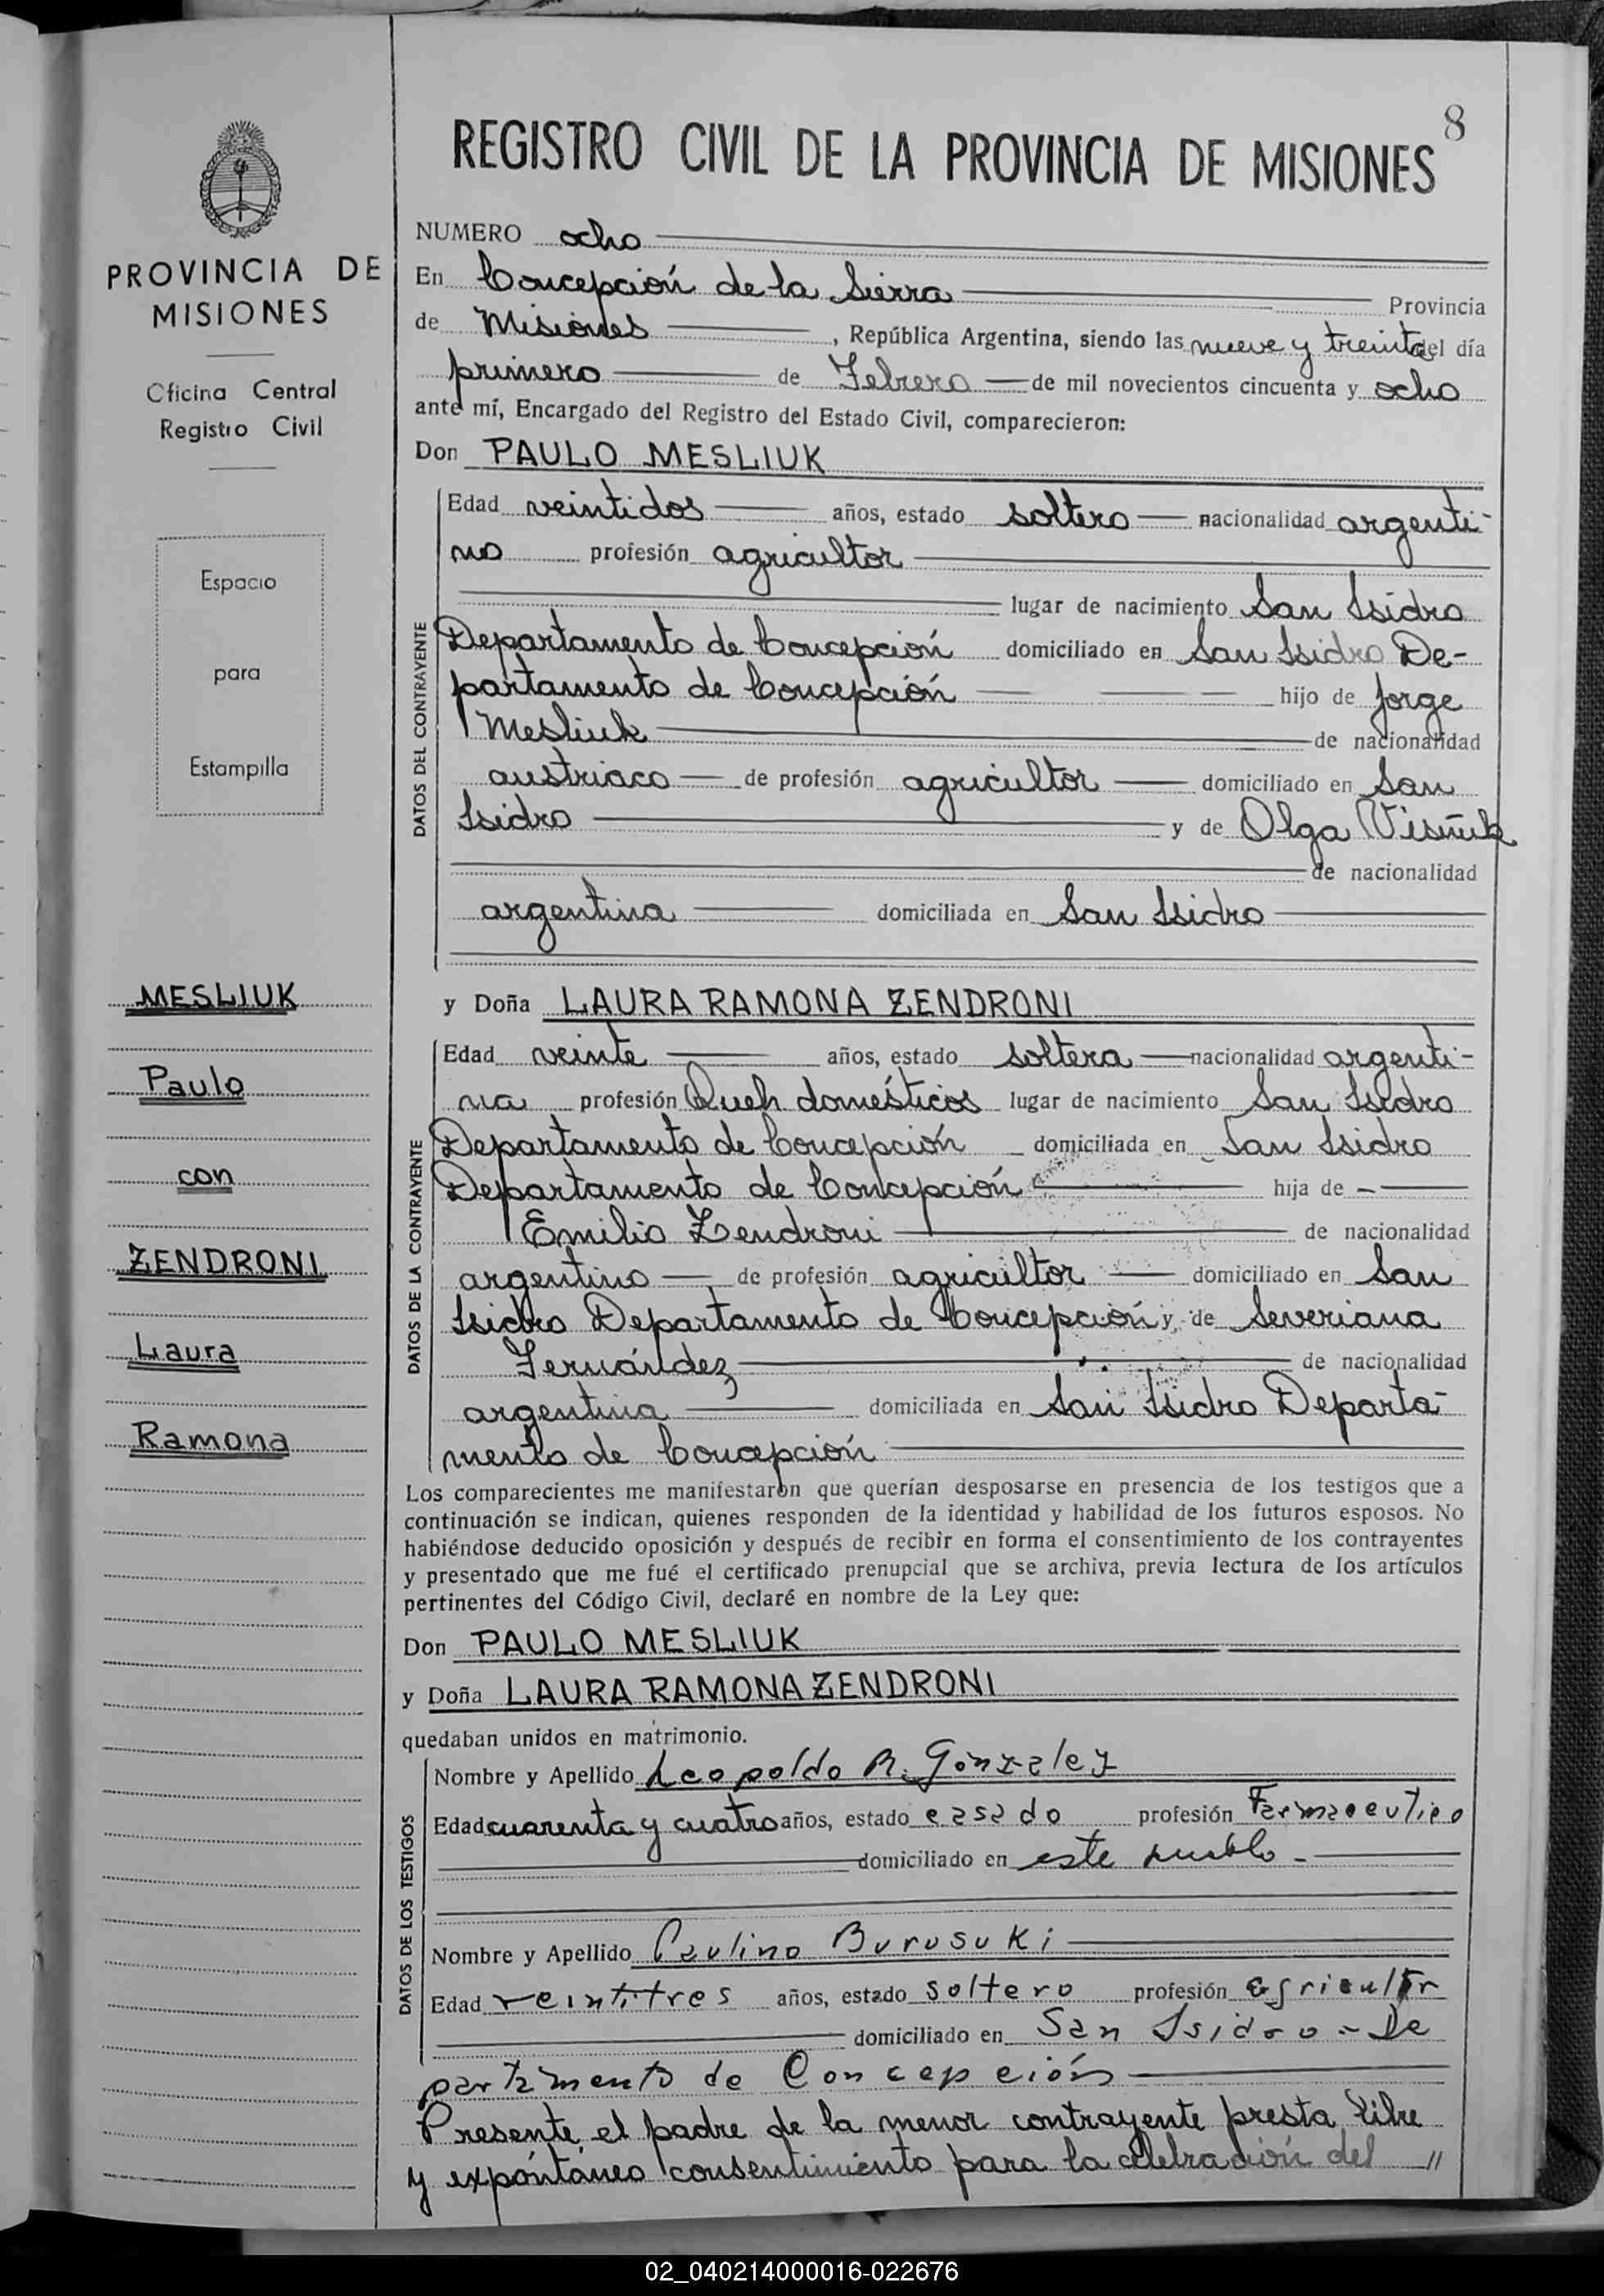 8
REGISTRO CIVIL DE LA PROVINCIA DE MISIONES
PROVINCIA DE
MISIONES
Oficina Central
Registro Civil
Espacio
para
Estampilla
MESLIUK
Paulo
con
ZENDRONI
Laura
Ramona
NUMERO ocho
En Concepción de la Sierra Provincia
de Misiones, República Argentina, siendo las nueve y treinta del día
primero de Febrero de mil novecientos cincuenta y ocho
ante mí, Encargado del Registro del Estado Civil, comparecieron:
Don PAULO MESLIUK
DATOS DEL CONTRAYENTE
Edad veintidos años, estado soltero nacionalidad argenti-
no profesión agricultor
lugar de nacimiento San Isidro
Departamento de Concepción domiciliado en San Isidro De-
partamento de Concepción hijo de Jorge
Mesliuk de nacionalidad
austriaco de profesión agricultor domiciliado en San
Isidro y de Olga Visñuk
de nacionalidad
argentina domiciliada en San Isidro
y Doña LAURA RAMONA ZENDRONI
DATOS DE LA CONTRAYENTE
Edad veinte años, estado soltera nacionalidad argenti-
na profesión Queh. domésticos lugar de nacimiento San Isidro
Departamento de Concepción domiciliada en San Isidro
Departamento de Concepción hija de -
Emilio Zendroni de nacionalidad
argentino de profesión agricultor domiciliado en San
Isidro Departamento de Concepción y de Severiana
Fernández de nacionalidad
argentina domiciliada en San Isidro Departa-
mento de Concepción
Los comparecientes me manifestaron que querían desposarse en presencia de los testigos que a
continuación se indican, quienes responden de la identidad y habilidad de los futuros esposos. No
habiéndose deducido oposición y después de recibir en forma el consentimiento de los contrayentes
y presentado que me fué el certificado prenupcial que se archiva, previa lectura de los artículos
pertinentes del Código Civil, declaré en nombre de la Ley que:
Don PAULO MESLIUK
y Doña LAURA RAMONA ZENDRONI
quedaban unidos en matrimonio.
DATOS DE LOS TESTIGOS
Nombre y Apellido Leopoldo R. Gonzalez
Edad cuarenta y cuatro años, estado casado profesión Farmaceutico
domiciliado en este pueblo -
Nombre y Apellido Paulino Burusuki
Edad veintitres años, estado soltero profesión agricultor
domiciliado en San Isidro - De
partamento de Concepción
Presente el padre de la menor contrayente presta libre
y expóntáneo consentimiento para la celebración del //
02_040214000016-022676